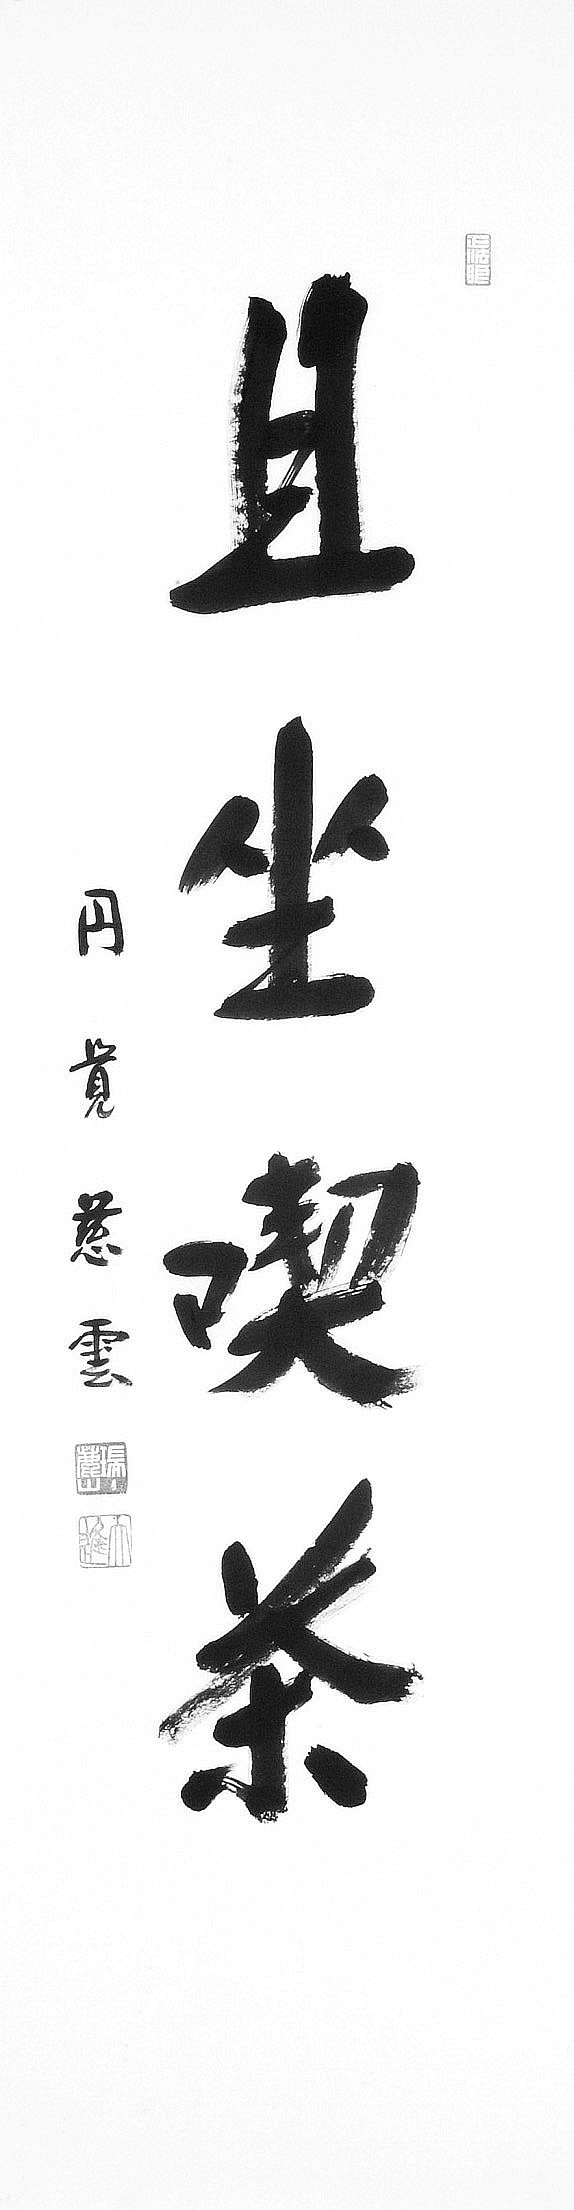 且坐喫茶
円覚慈雲